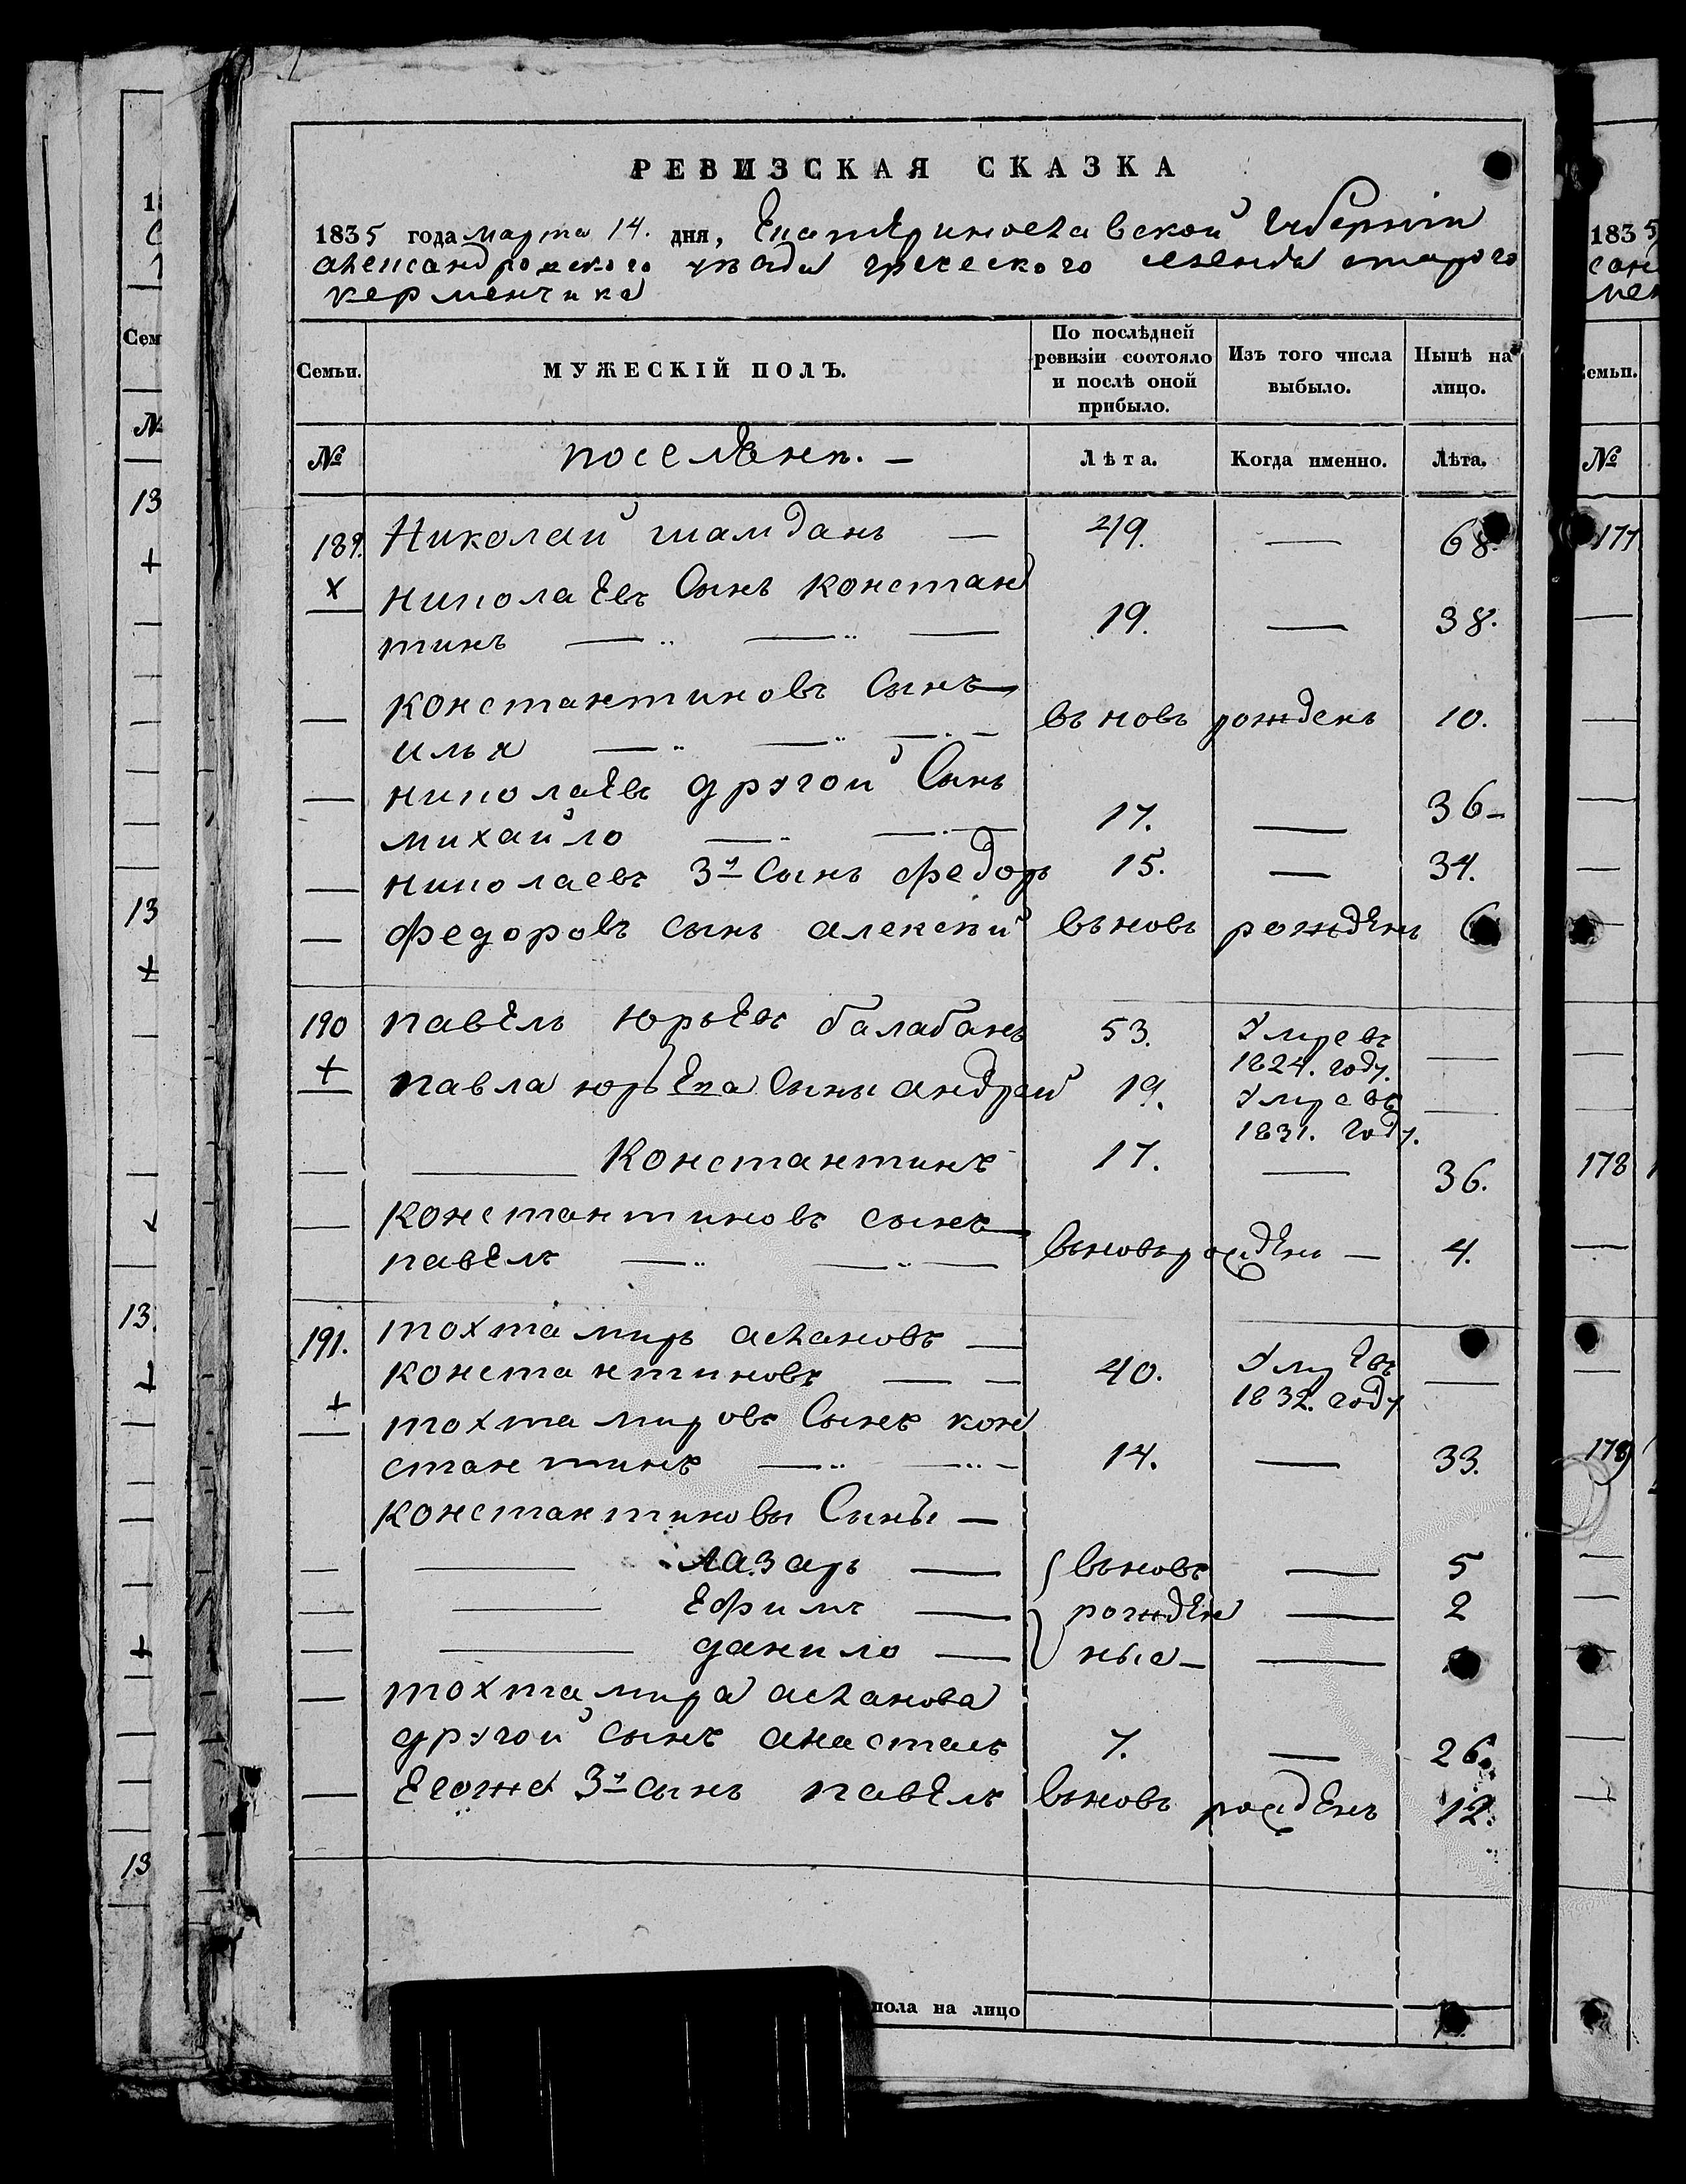 РЕВИЗСКАЯ СКАЗКА
1835 года марта 14. дня, Екатеринославской губерніи
александровского уезда греческого селенія старого
керменчика
Семьи.
МУЖЕСКІЙ ПОЛЪ.
По послѣдней ревизіи состояло и послѣ оной прибыло.
Изъ того числа выбыло.
Нынѣ на лицо.
№ поселянъ. — Лѣта. Когда именно. Лѣта.
189. Николай шамданъ — 49. — 68.
х николаевъ Сынъ констан
тинъ — — — 19. — 38.
— константиновъ Сынъ
илья — — — въновь рожденъ 10.
— николаевъ другой Сынъ
михайло — — 17. — 36-
— николаевъ 3й Сынъ федоръ 15. — 34.
— федоровъ сынъ алексѣй въновь рожденъ 6
190 павелъ юрьевъ балабанъ 53. Умре въ
1824. году. —
+ павла юрьева Сынъ андрей 19. Умре въ
1831. году. —
— — Константинъ 17. — 36.
— константиновъ сынъ
павелъ — — въновь рожденъ — 4.
191. тохтамиръ аслановъ —
константиновъ — — 40. Умре въ
1832. году —
+ тохтамировъ Сынъ кон
стантинъ — — 14. — 33.
константиновы Сыны —
— — лазарь — въновь — 5
— — Ефимъ — рожден — 2
— — данило — ные — —
— тохтамира асланова
другой сынъ анастась 7. — 26.
— Егоже 3й сынъ павелъ въновь рожденъ 12.
пола на лицо
1835
сан
мен
Семьи.
№
177
178
179
Сем
№
13
13
13
13